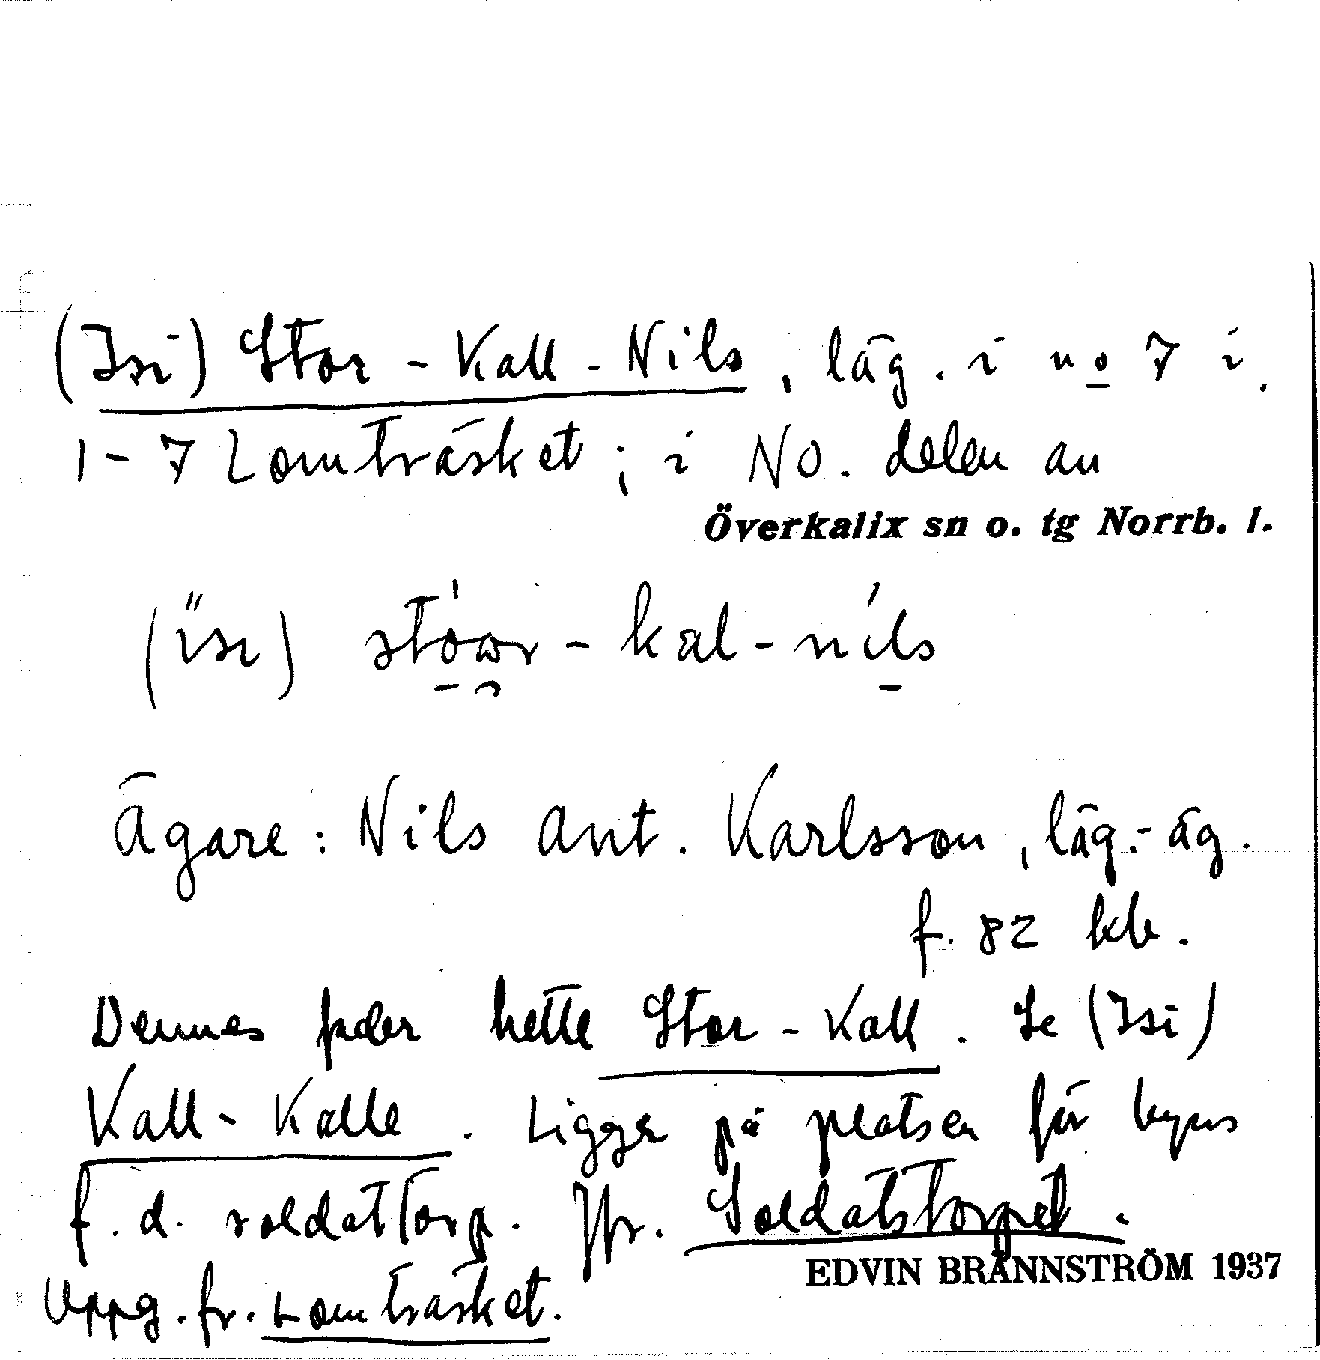 (Isi) Stor-Kall-Nils, läg. i no 7 i
1-7 Lomträsket; i NO. delen av
Överkalix sn o. tg Norrb. l.
(ïsı) stóωr-kal-níls
Ägare: Nils Ant. Karlsson, läg.-äg.
f. 82 kbr.
Dennes fader hette Stor-Kall. Se (Isi)
Kall-Kalle. Ligger på platsen för byns
f. d. soldattorp. Jfr. Soldatstorpet.
EDVIN BRÄNNSTRÖM 1937
Uppg. fr. Lomträsket.